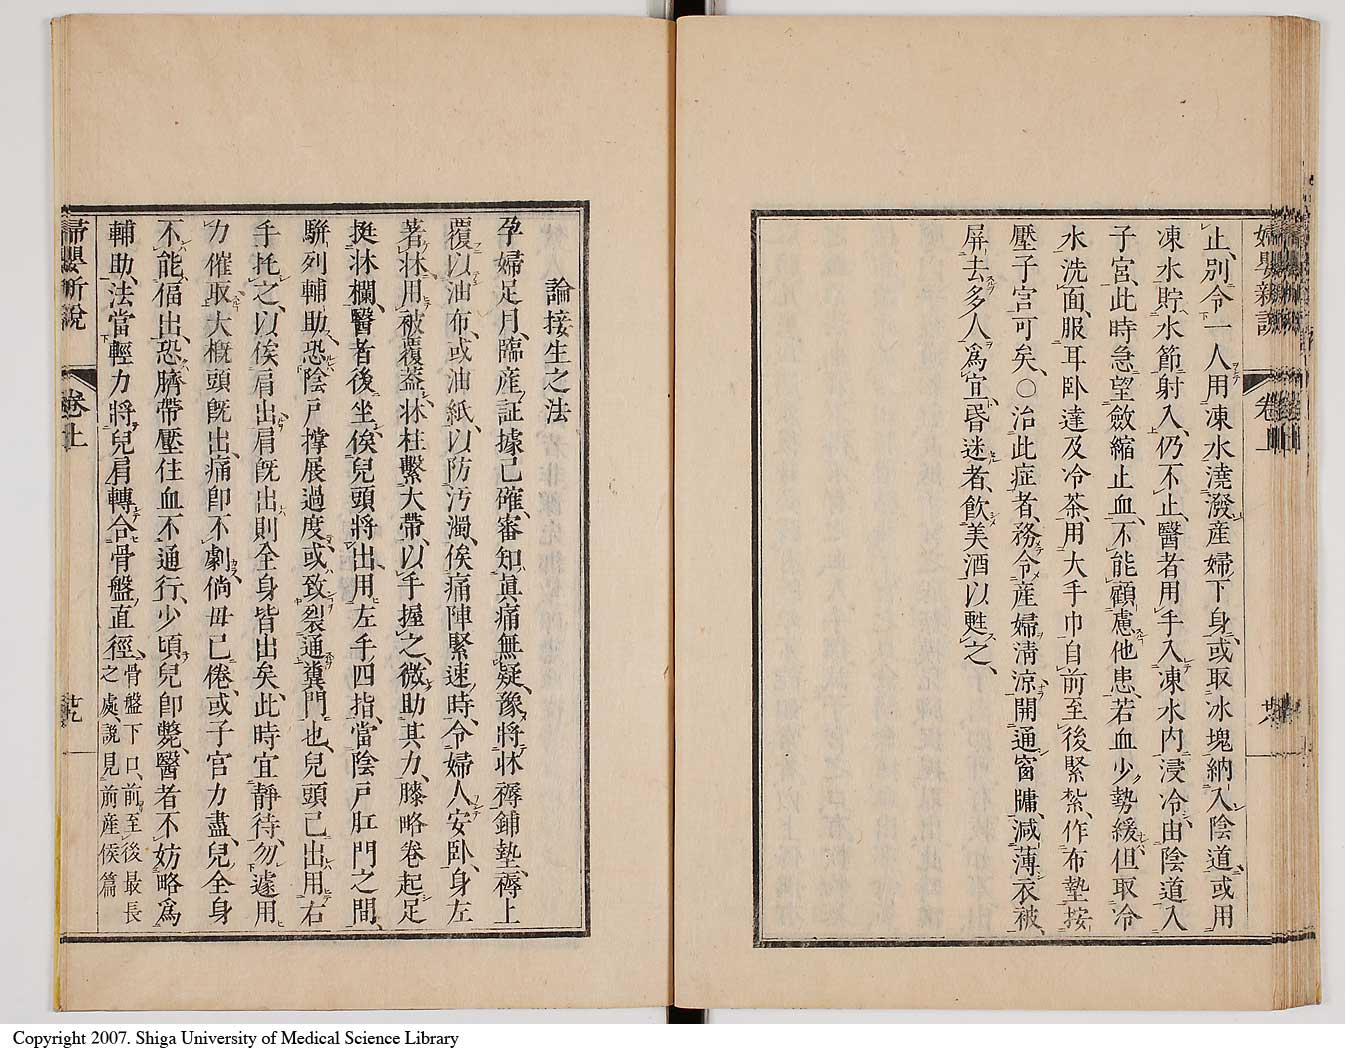 婦嬰新說 卷上
止、別令一人用凍水澆潑產婦下身、或取冰塊納入陰道、或用
凍水貯水節射入、仍不止、醫者用手入凍水內浸冷、由陰道入
子宮、此時急望斂縮止血、不能顧慮他患、若血少勢緩、但取冷
水洗面、服耳卧達及冷茶、用大手巾自前至後緊紮、作布墊按
壓子宮可矣、〇治此症者、務令產婦清涼、開通窗牗、減薄衣被、
屏去多人爲宜、昬迷者、飲美酒以甦之、
論接生之法
孕婦足月、臨産証據已確、審知眞痛無疑、豫將牀褥鋪墊、褥上
覆以油布、或油紙、以防汚濁、俟痛陣緊速時、令婦人安卧、身左
著牀、用被覆葢、牀柱繫大帶、以手握之、微助其力、膝略卷起、足
挺牀欄、醫者後坐、俟兒頭將出、用左手四指、當陰戶肛門之間、
駢列輔助、恐陰戶撐展過度、或致裂通糞門也、兒頭已出、用右
手托之、以俟肩出、肩旣出、則全身皆出矣、此時宜靜待、勿遽用
力催取、大槪頭旣出、痛卽不劇、倘毋已倦、或子宮力盡、兒全身
不能偪出、恐臍帶壓住血不通行、少頃兒卽斃、醫者不妨略爲
輔助、法當輕力將兒肩轉合骨盤直徑、骨盤下口、前至後最長之處、說見前産候篇
婦嬰新說 卷上